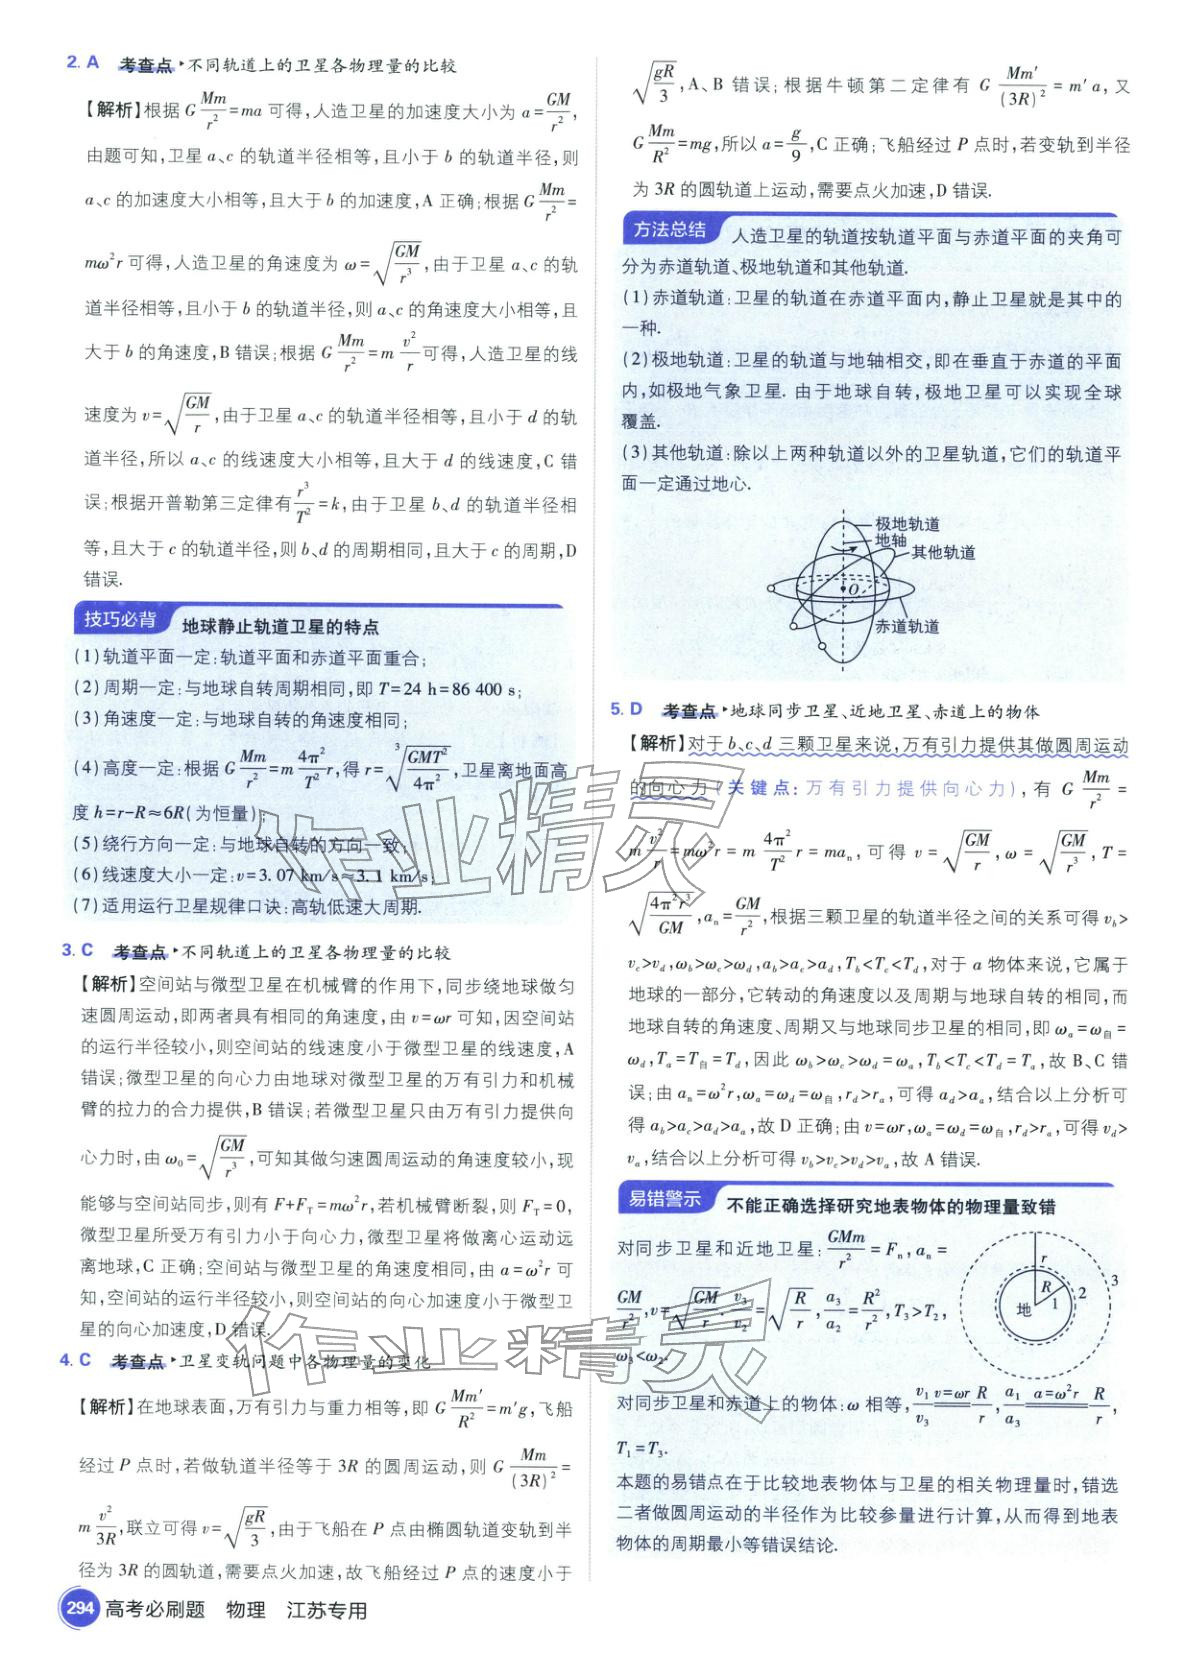 2. A 考查点▸不同轨道上的卫星各物理量的比较
【解析】根据 G Mm/r² = ma 可得,人造卫星的加速度大小为 a = GM/r²,
由题可知,卫星 a、c 的轨道半径相等,且小于 b 的轨道半径,则
a、c 的加速度大小相等,且大于 b 的加速度,A 正确;根据 G Mm/r² =
mω²r 可得,人造卫星的角速度为 ω = √(GM/r³),由于卫星 a、c 的轨
道半径相等,且小于 b 的轨道半径,则 a、c 的角速度大小相等,且
大于 b 的角速度,B 错误;根据 G Mm/r² = m v²/r 可得,人造卫星的线
速度为 v = √(GM/r),由于卫星 a、c 的轨道半径相等,且小于 d 的轨
道半径,所以 a、c 的线速度大小相等,且大于 d 的线速度,C 错
误;根据开普勒第三定律有 r³/T² = k,由于卫星 b、d 的轨道半径相
等,且大于 c 的轨道半径,则 b、d 的周期相同,且大于 c 的周期,D
错误.
技巧必背 地球静止轨道卫星的特点
(1)轨道平面一定:轨道平面和赤道平面重合;
(2)周期一定:与地球自转周期相同,即 T = 24 h = 86 400 s;
(3)角速度一定:与地球自转的角速度相同;
(4)高度一定:根据 G Mm/r² = m 4π²/T² r,得 r = ³√(GMT²/4π²),卫星离地面高
度 h = r-R≈6R(为恒量);
(5)绕行方向一定:与地球自转的方向一致;
(6)线速度大小一定:v = 3.07 km/s≈3.1 km/s;
(7)适用运行卫星规律口诀:高轨低速大周期.
3. C 考查点▸不同轨道上的卫星各物理量的比较
【解析】空间站与微型卫星在机械臂的作用下,同步绕地球做匀
速圆周运动,即两者具有相同的角速度,由 v = ωr 可知,因空间站
的运行半径较小,则空间站的线速度小于微型卫星的线速度,A
错误;微型卫星的向心力由地球对微型卫星的万有引力和机械
臂的拉力的合力提供,B 错误;若微型卫星只由万有引力提供向
心力时,由 ω₀ = √(GM/r³),可知其做匀速圆周运动的角速度较小,现
能够与空间站同步,则有 F+F_T = mω²r,若机械臂断裂,则 F_T = 0,
微型卫星所受万有引力小于向心力,微型卫星将做离心运动远
离地球,C 正确;空间站与微型卫星的角速度相同,由 a = ω²r 可
知,空间站的运行半径较小,则空间站的向心加速度小于微型卫
星的向心加速度,D 错误.
4. C 考查点▸卫星变轨问题中各物理量的变化
【解析】在地球表面,万有引力与重力相等,即 G Mm′/R² = m′g,飞船
经过 P 点时,若做轨道半径等于 3R 的圆周运动,则 G Mm/(3R)² =
m v²/3R,联立可得 v = √(gR/3),由于飞船在 P 点由椭圆轨道变轨到半
径为 3R 的圆轨道,需要点火加速,故飞船经过 P 点的速度小于
294 高考必刷题 物理 江苏专用
√(gR/3),A、B 错误;根据牛顿第二定律有 G Mm′/(3R)² = m′a,又
G Mm/R² = mg,所以 a = g/9,C 正确;飞船经过 P 点时,若变轨到半径
为 3R 的圆轨道上运动,需要点火加速,D 错误.
方法总结 人造卫星的轨道按轨道平面与赤道平面的夹角可
分为赤道轨道、极地轨道和其他轨道.
(1)赤道轨道:卫星的轨道在赤道平面内,静止卫星就是其中的
一种.
(2)极地轨道:卫星的轨道与地轴相交,即在垂直于赤道的平面
内,如极地气象卫星. 由于地球自转,极地卫星可以实现全球
覆盖.
(3)其他轨道:除以上两种轨道以外的卫星轨道,它们的轨道平
面一定通过地心.
极地轨道
地轴
其他轨道
O
赤道轨道
5. D 考查点▸地球同步卫星、近地卫星、赤道上的物体
【解析】对于 b、c、d 三颗卫星来说,万有引力提供其做圆周运动
的向心力(关键点:万有引力提供向心力),有 G Mm/r² =
m v²/r = mω²r = m 4π²/T² r = maₙ,可得 v = √(GM/r),ω = √(GM/r³),T =
√(4π²r³/GM),aₙ = GM/r²,根据三颗卫星的轨道半径之间的关系可得 v_b>
v_c>v_d,ω_b>ω_c>ω_d,a_b>a_c>a_d,T_b<T_c<T_d,对于 a 物体来说,它属于
地球的一部分,它转动的角速度以及周期与地球自转的相同,而
地球自转的角速度、周期又与地球同步卫星的相同,即 ω_a = ω_自 =
ω_d,T_a = T_自 = T_d,因此 ω_b>ω_c>ω_d = ω_a,T_b<T_c<T_d = T_a,故 B、C 错
误;由 aₙ = ω²r,ω_a = ω_d = ω_自,r_d>r_a,可得 a_d>a_a,结合以上分析可
得 a_b>a_c>a_d>a_a,故 D 正确;由 v = ωr,ω_a = ω_d = ω_自,r_d>r_a,可得 v_d>
v_a,结合以上分析可得 v_b>v_c>v_d>v_a,故 A 错误.
易错警示 不能正确选择研究地表物体的物理量致错
对同步卫星和近地卫星: GMm/r² = Fₙ,aₙ =
GM/r²,v = √(GM/r),v₃/v₂ = √(R/r),a₃/a₂ = R²/r²,T₃>T₂,
ω₃<ω₂.
r
R
地
1
2
3
对同步卫星和赤道上的物体:ω 相等,v₁/v₃ =(v=ωr)= R/r,a₁/a₃ =(a=ω²r)= R/r,
T₁ = T₃.
本题的易错点在于比较地表物体与卫星的相关物理量时,错选
二者做圆周运动的半径作为比较参量进行计算,从而得到地表
物体的周期最小等错误结论.
作业精灵
作业精灵